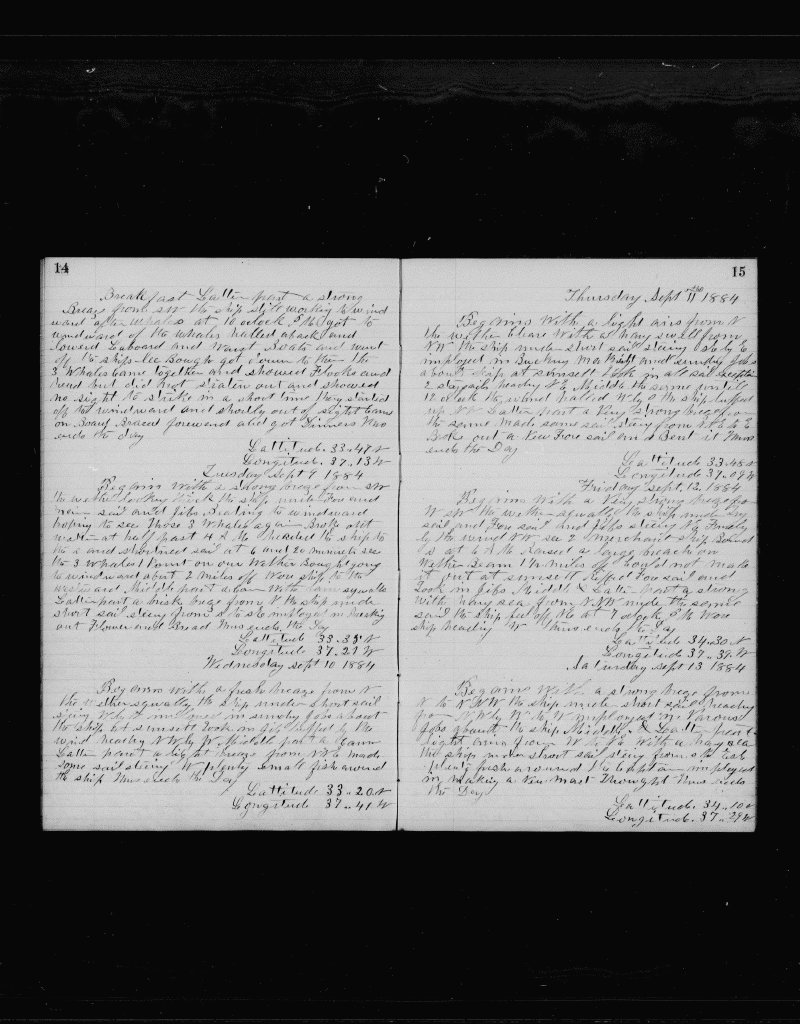 14
Breakfast Latter part a strong
Breaze from SW the ship still working to wind
ward after whales at 10 oclock AM got to
windward of the whales hauled aback and
lowerd Laboard and Waist Boats and went
off the ships lee Bough got down to them the
3 Whales came together and showed Flooks and
head but did not stop out and showed
no sight to strike in a short time they started
off to windward and shortly out of sight came
on Board Braced forward and got Dinners Thus
ends the day
Lattitude 33..47 N
Longitude 37..13 W
Tuesday Sept 9 1884
Begains With a strong breze from SW
the wether looking thick the ship under Fore and
main sail and Jibs Beating to windward
hoping to see Those 3 Whales again Broke out
water at half past 4 PM headed the ship to
the and shortned sail at 6 and 20 minuets see
the 3 Whales 1 Point on our Wether Bough going
to windward about 2 miles off Wore ship to the
westward Middle part a calm With rain squalls
Latter part a brisk breze from N the ship under
short sail steering from S to SE imployed in Breaking
out Flower and Bread Thus ends the Day
Lattitude 33..35 N
Longitude 37..21 W
Wednesday Sept 10 1884
Begains With a fresh breaze from N
the wether squally the ship under short sail
steering W by N imployed in sundry Jobs about
the ship at sunset took in Jib luffed by the
wind heading NW by W Middle part a Calm
Latter part a light breeze from NE made
some sail steering W plenty small fish around
the ship Thus ends the Day
Lattitude 33..20 N
Longitude 37..41 W
15
Thursday Sept 11 1884
Begains With a light airs from N
the wether Cleare With a havy swell from
NW the ship under short sail steering E by S
imployed in Bucking Mast and sundry Jobs
about ship at sunsett took in all sail excepting
2 staysails heading NE Middle the same untill
12 oclock the wind hailed W by S the ship luffed
up NW Latter part a Very strong breze from
the same made some sail steering from N to
Broke out a New Fore sail and Bent it Thus
ends the Day
Lattitude 33..48 N
Longitude 37..09 W
Friday Sept. 12. 1884
Begains With a Very strong breze from
W SW the wether squally the ship under
sail and Fore sail and Jibs steering
by the wind NW see 2 Merchant ship Bound
at 6 PM Raised a large beach on
Wether Beam 1 1/2 miles off could not make
it out at sunsett Reffed Fore sail and
took in Jibs Middle & Latter part a strong
With havy sea from NNW under the same
sail the ship heading off NE at 7 oclock AM Wore
ship heading W Thus ends the Day
Lattitude 34..30 N
Longitude 37..37 W
Saturday Sept 13 1884
Begains With a strong breze from
N to NNW the ship under short sail heading
from NW by W to W imployed in Various
Jobs about the ship Middle & Latter part
light airs from W to With a havy sea
the ship under short sail steering from SW
plenty fish around the imployed
in making a New Mast Thus ends
the Day
Lattitude 34..10 N
Longitude 37..29 W